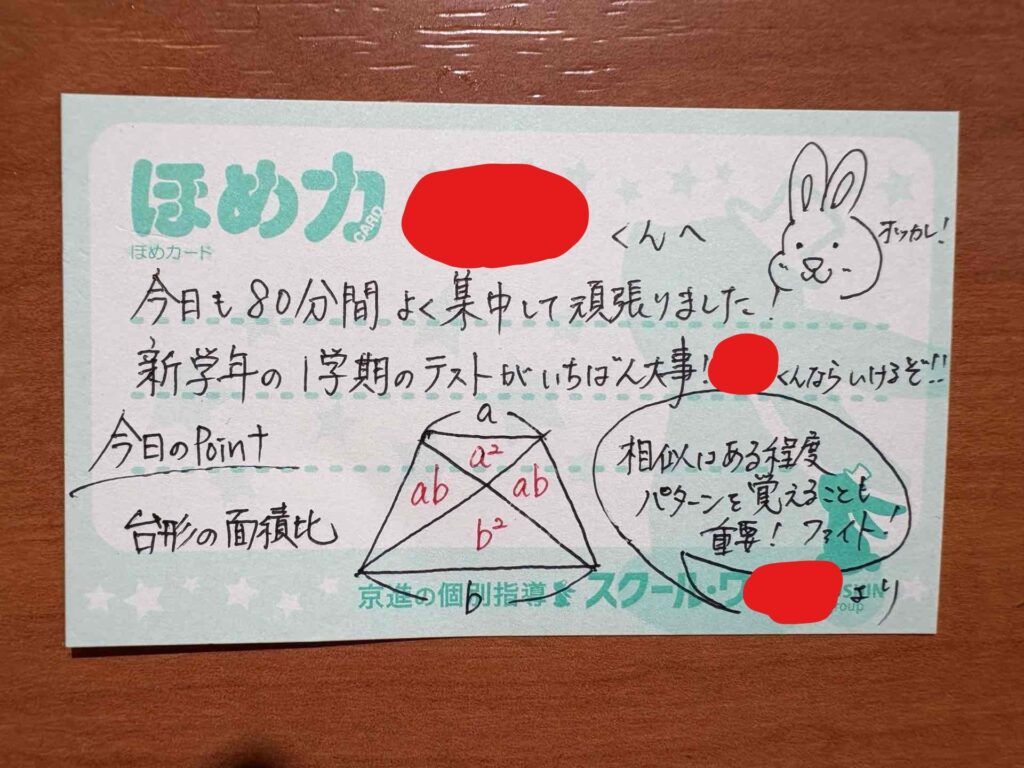 ほめ力
CARD
ほめカード
くんへ
ホッカレ!
今日も80分間よく集中して頑張りました!
新学年の1学期のテストがいちばん大事!
くんならいけるぞ!!
今日のPoint
台形の面積比
a
a²
ab
ab
b²
b
相似はある程度
パターンを覚えることも
重要! ファイト!
京進の個別指導 スクール・ワ
より
roup